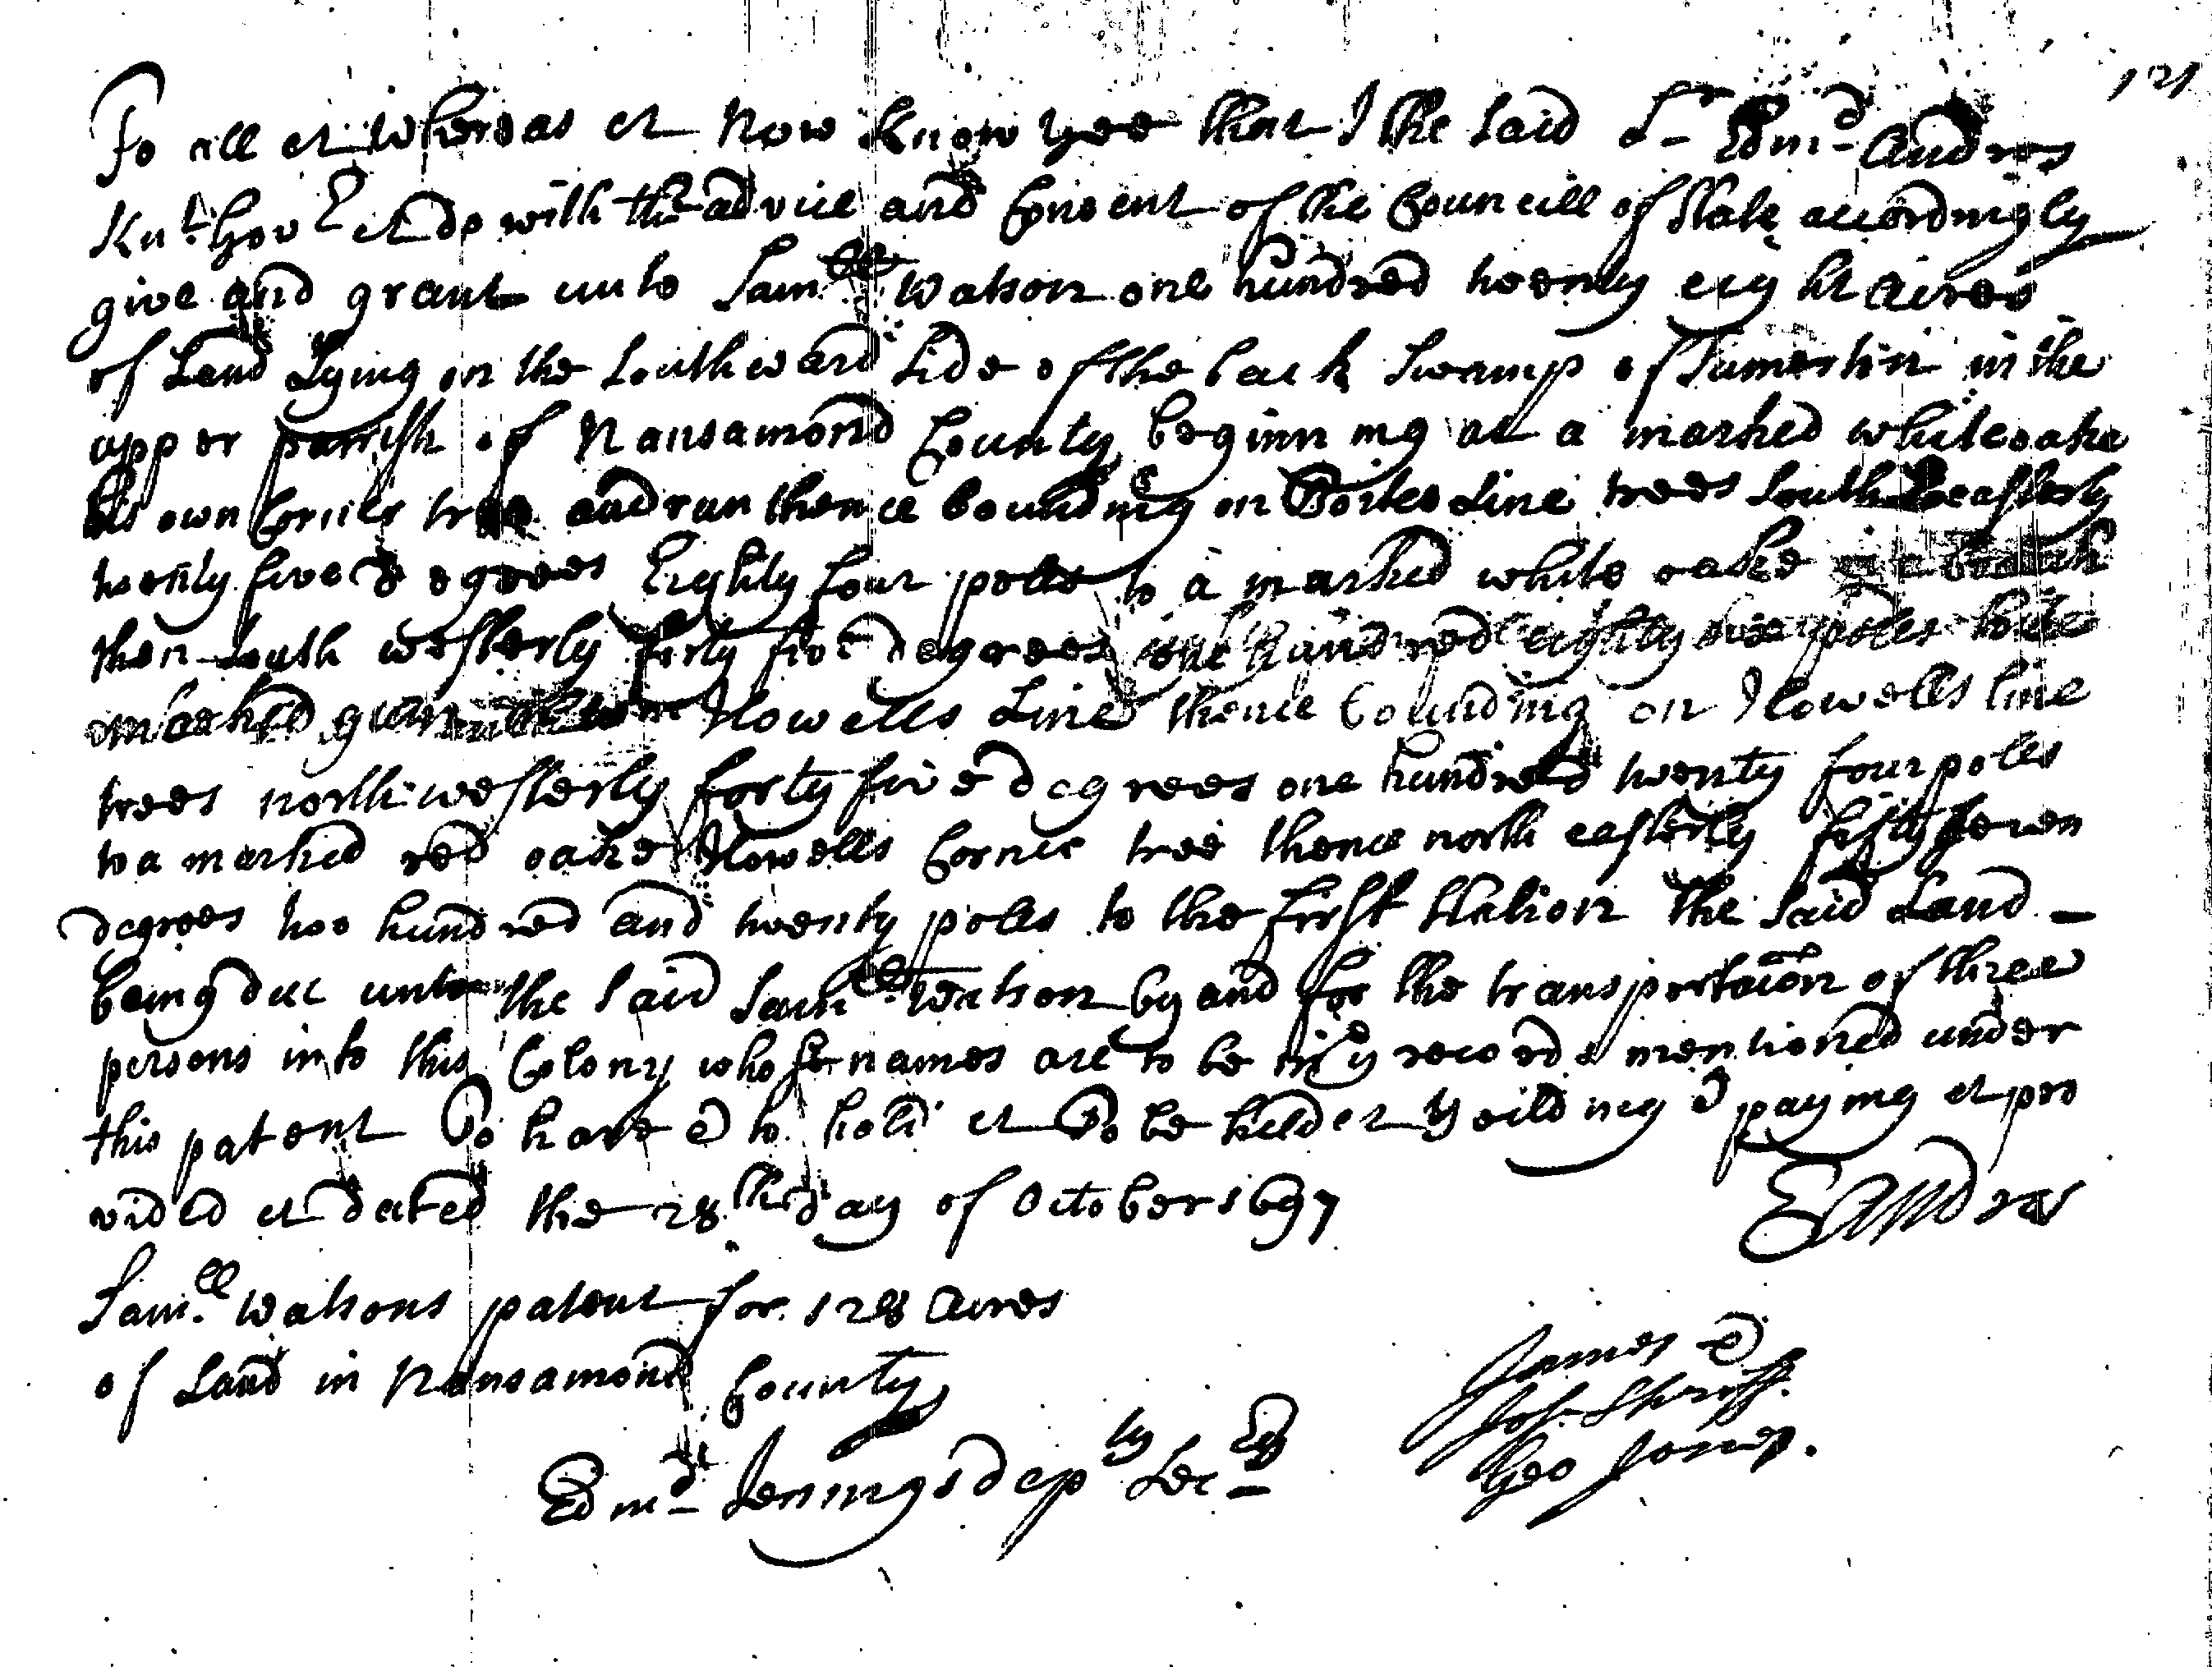 121
To all et Whereas et Now Know yee that I the said Sr Edmd Andros
Knt Govr et do with the advice and Consent of the Councill of State accordingly
give and grant unto Samll Watson one hundred twenty eight acres
of Land Lying on the Southward side of the back Swamp of Sumerton in the
upper parrish of Nansamond County beginning at a marked white oake
his own Corner tree and run thence bounding on line trees South easterly
twenty five degrees Eighty four poles to a marked white oake in a
then South westerly forty five degrees one hundred eighty poles to a
marked gum in Howells Line thence bounding on Howells line
trees north westerly forty five degrees one hundred twenty four poles
to a marked red oake Howells Corner tree thence north easterly fifty seven
degrees two hundred and twenty poles to the first station the said Land
being due unto the said Samll Watson by and for the transportacon of three
persons into this Colony whose names are to be in ye records mentioned under
this patent To have & to hold et To be held et Yeilding & paying et pro
vided et dated the 28th day of October 1697
EAndros
Samll Watsons patent for 128 acres
of Land in Nansamond County
James &
Jos. Shriff.
Geo Jones.
Edmd Jenings depty Secry